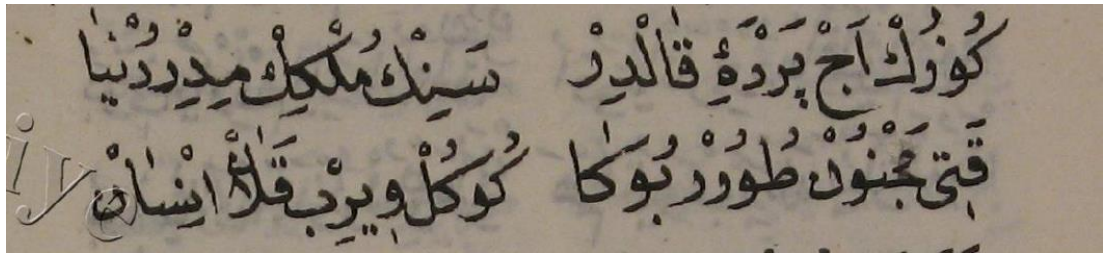 كُوزُكْ اَچْ پَرْدَهٔ قَالْدِرْ سَنِنْكْ مُلْكِكْ مِدِرْ دُنْيَا
قَتِى مَجْنُونْ طُورُرْ بُوكَا كُوكُلْ وِيرِبْ قَلَانْ اِنْسَانْ